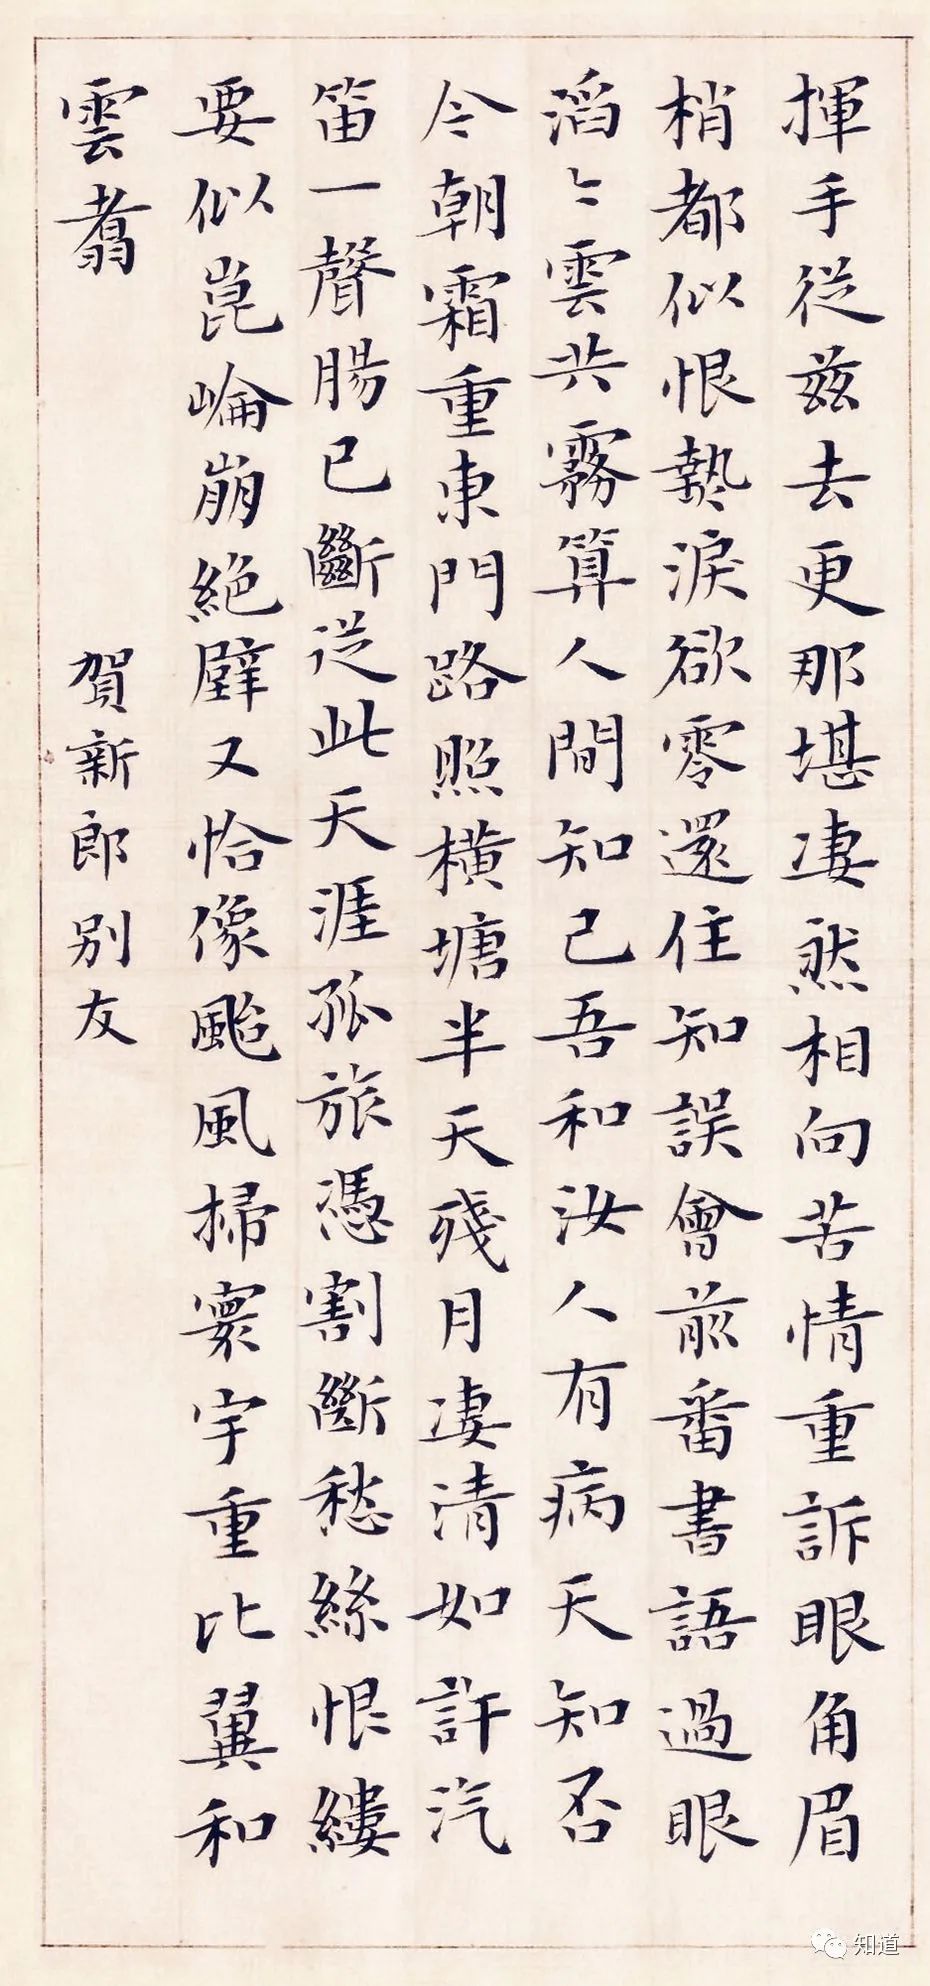 揮手從茲去更那堪凄然相向苦情重訴眼角眉
梢都似恨熱淚欲零還住知誤會前番書語過眼
滔〻雲共霧算人間知己吾和汝人有病天知否
今朝霜重東門路照橫塘半天殘月凄清如許汽
笛一聲腸已斷從此天涯孤旅憑割斷愁絲恨縷
要似崑崙崩絕壁又恰像颱風掃寰宇重比翼和
雲翥
賀新郎別友
知道